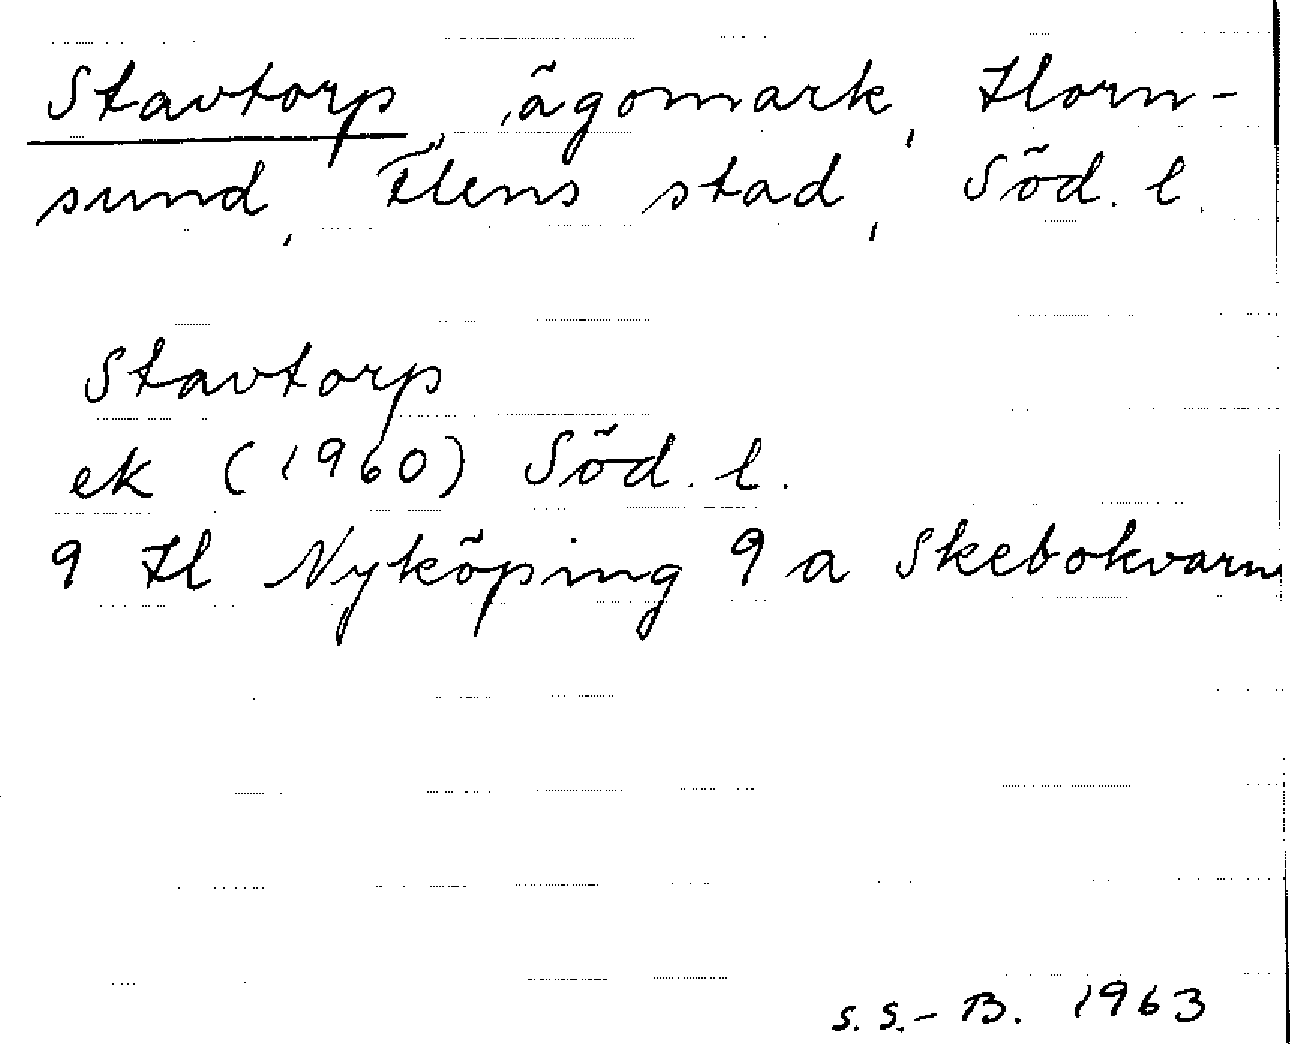 Stavtorp, ägomark, Horn-
sund, Flens stad, Söd. l.
Stavtorp
ek (1960) Söd. l.
9 H Nyköping 9 a Skebokvarn
S. S.-B. 1963